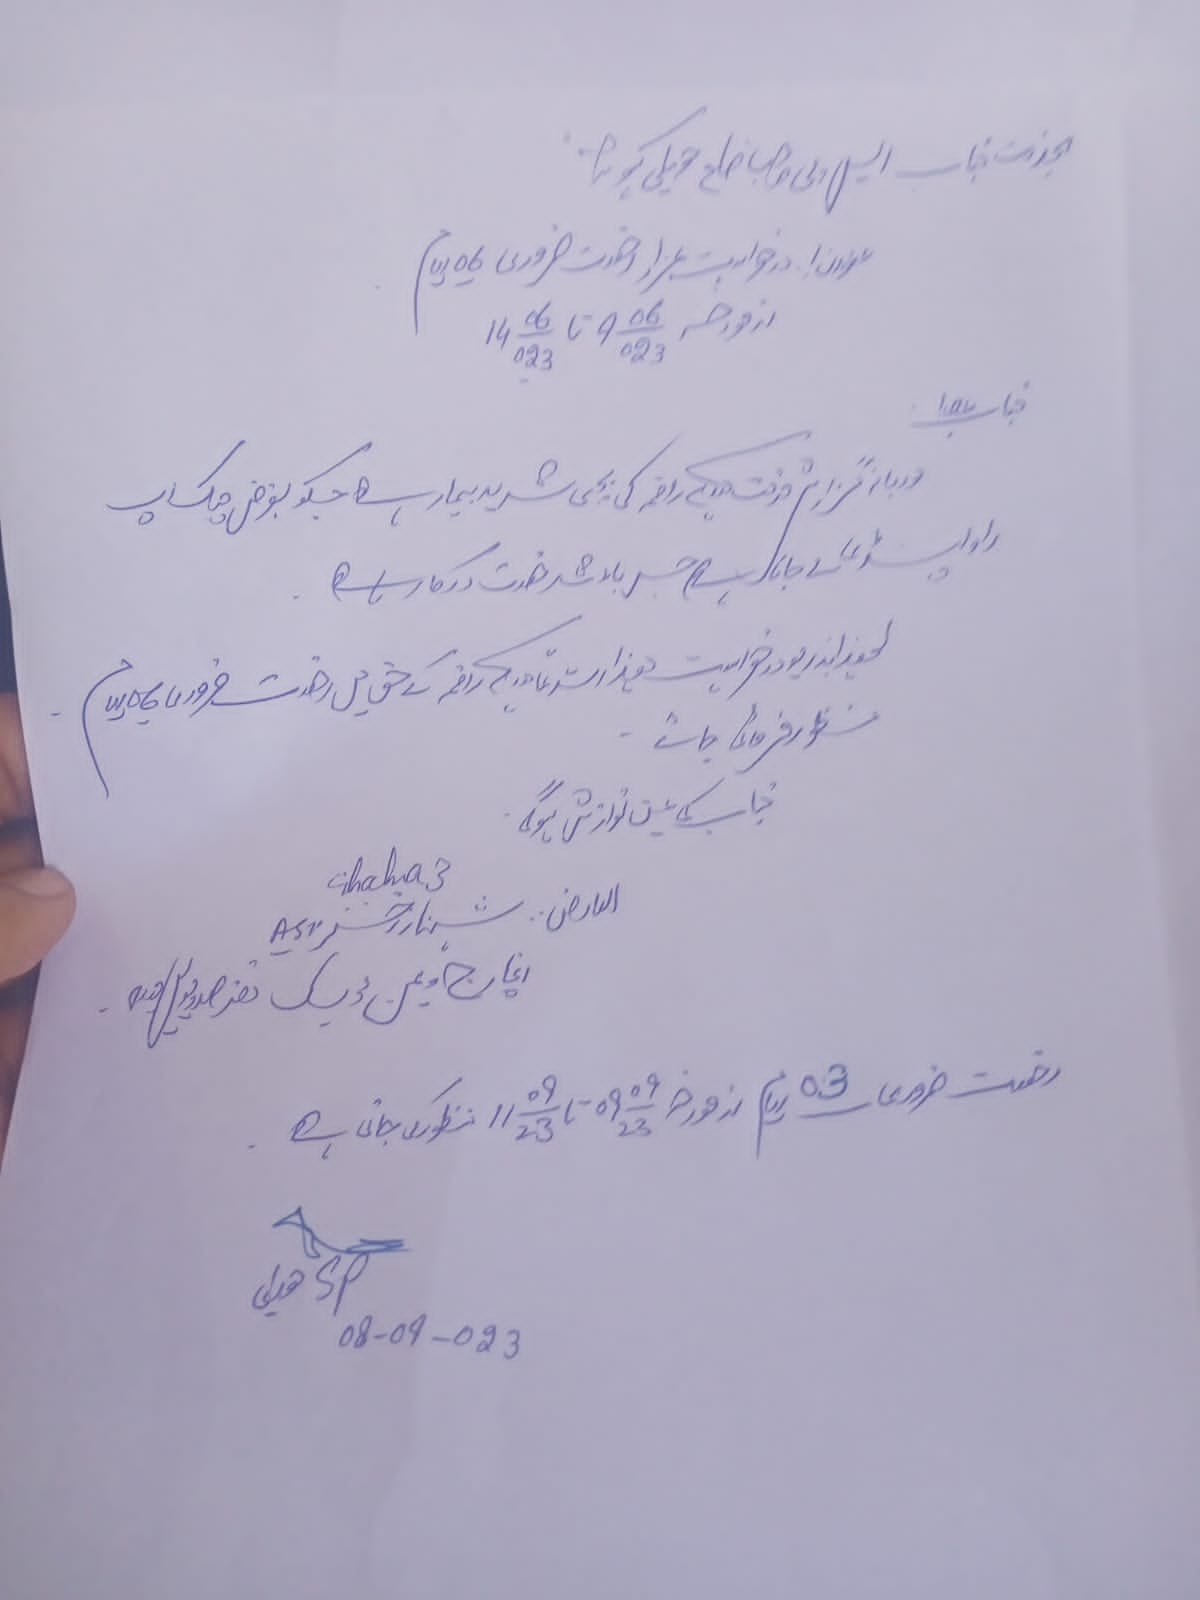 بخدمت جناب ایس پی صاحب ضلع حویلی کہوٹہ
عنوان! درخواست بمراد رخصت ضروری 06 یوم
ازمورخہ 9 06/023 تا 14 06/023
جناب عالی!
مودبانہ گزارش خدمت ہیکہ راقمہ کی بچی شدید بیمار ہے جسکو بغرض چیک اپ
راولپنڈی لے جانا ہے جس بالا شد رخصت درکار ہے
لہذا بذریعہ درخواست ھذا استدعا ہیکہ راقمہ کے حق میں رخصت ضروری 06 یوم
منظور فرمائی جائے
جناب کی عین نوازش ہوگی
العارض: شہناز اختر ASI
انچارج ویمن ڈیسک
رخصت ضروری 03 یوم ازمورخہ 09 09/23 تا 11 09/23 منظور کی جاتی ہے
SP حویلی
08-09-023